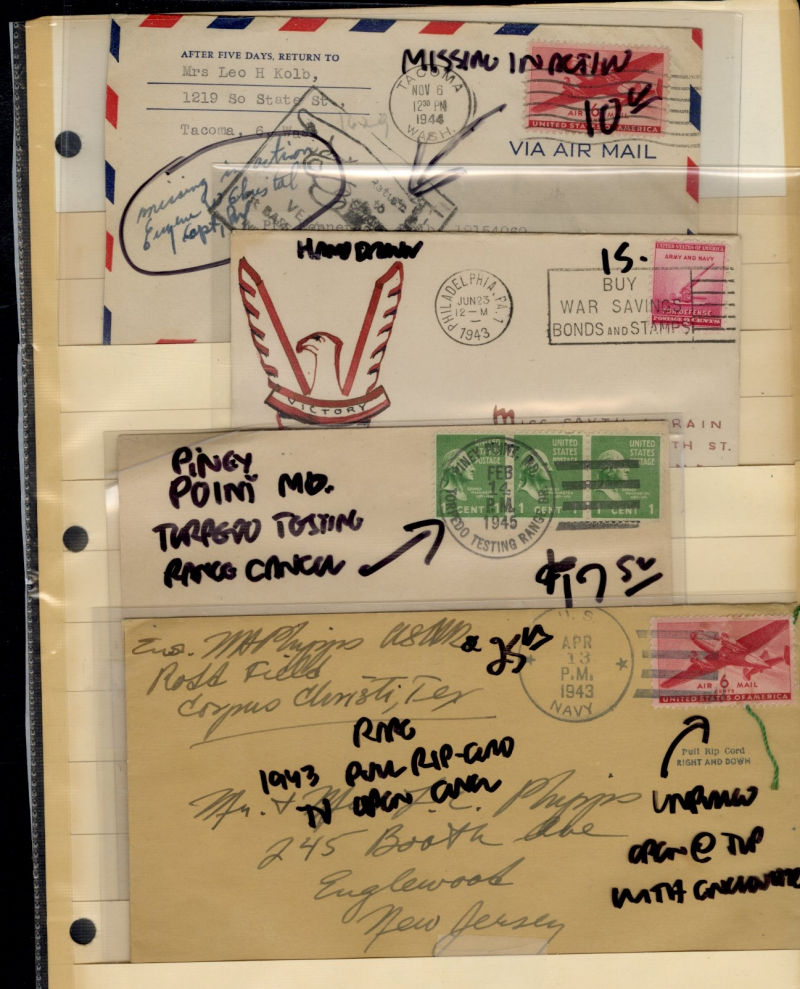 AFTER FIVE DAYS, RETURN TO
Mrs Leo H Kolb,
1219 So State St.,
Tacoma, 6, Wash
MISSING IN ACTION
TACOMA
NOV 6
12 30 PM
1944
WASH.
10
AIR 6 MAIL
UNITED STATES OF AMERICA
VIA AIR MAIL
missing in action
Capt
HAND DRAWN
VICTORY
PHILADELPHIA, PA. 1
JUN 23
12-M
1943
BUY
WAR SAVINGS
BONDS AND STAMPS
15.
UNITED STATES OF AMERICA
ARMY AND NAVY
FOR DEFENSE
TH ST.
PINEY
POINT MD.
TORPEDO TESTING
RANGE CANCEL
PINEY POINT MD.
FEB
14
1945
TORPEDO TESTING RANGE
UNITED
STATES
POSTAGE
1 CENT 1
1 CENT 1
1 CENT 1
$17 50
Ens. M H Phipps USNR
Rodd Field
Corpus Christi, Tex
25
U.S.
APR
13
P.M.
1943
NAVY
AIR 6 MAIL
CENTS
UNITED STATES OF AMERICA
Pull Rip Cord
RIGHT AND DOWN
RARE
1943 PULL RIP-CORD
TO OPEN COVER
Mr. & Mrs. Phipps
245 Booth Ave
Englewood
New Jersey
OPEN @ TOP
WITH